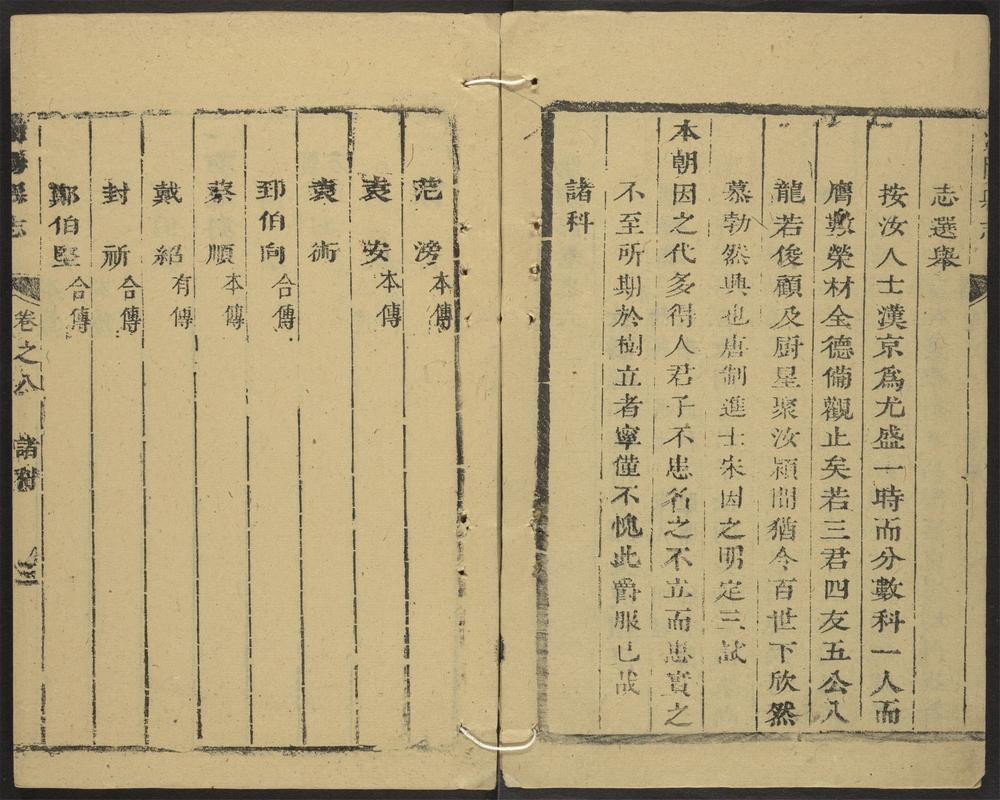 志選舉
按汝人士漢京爲尤盛一時而分數科一人而
膺數榮材全德備觀止矣若三君四友五公八
龍若俊顧及廚星聚汝穎間猶令百世下欣然
慕勃然興也唐制進士宋因之明定三試
本朝因之代多得人君子不患名之不立而患實之
不至所期於樹立者寧僅不愧此爵服已哉
諸科
范滂 本傳
袁安 本傳
袁術
郅伯向 合傳
蔡順 本傳
戴紹 有傳
封祈 合傳
鄭伯堅 合傳
志 卷之八 諸科